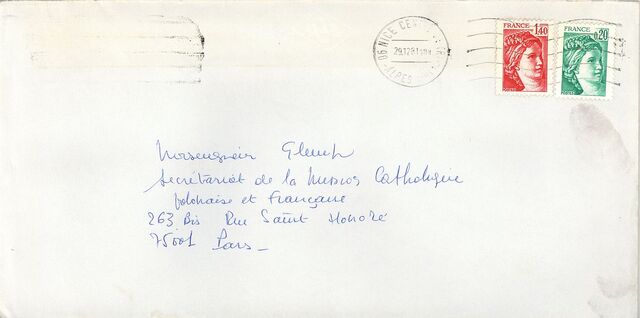 06 NICE CE
29.12.81
ALPES
FRANCE
1,40
FRANCE
0,20
Monseigneur Glemp
Secrétariat de la Mission Catholique
polonaise et Française
263 Bis Rue Saint Honoré
75001 Paris_